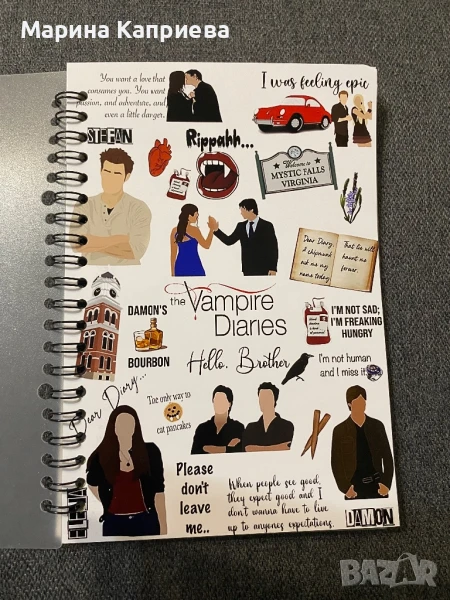 Марина Каприева
You want a love that
consumes you. You want
passion, and adventure, and
even a little danger.
I was feeling epic
STEFAN
Rippahh...
Welcome to
MYSTIC FALLS
VIRGINIA
Dear Diary,
A chipmunk
asked me my
name today.
That lie will
haunt me
forever.
DAMON'S
BOURBON
the Vampire
Diaries
I'M NOT SAD;
I'M FREAKING
HUNGRY
Hello, Brother
I'm not human
and I miss it.
Dear Diary...
The only way to
eat pancakes
Please
don't
leave
me..
When people see good,
they expect good and I
don't wanna have to live
up to anyones expectations.
ELENA
DAMON
BAZAR